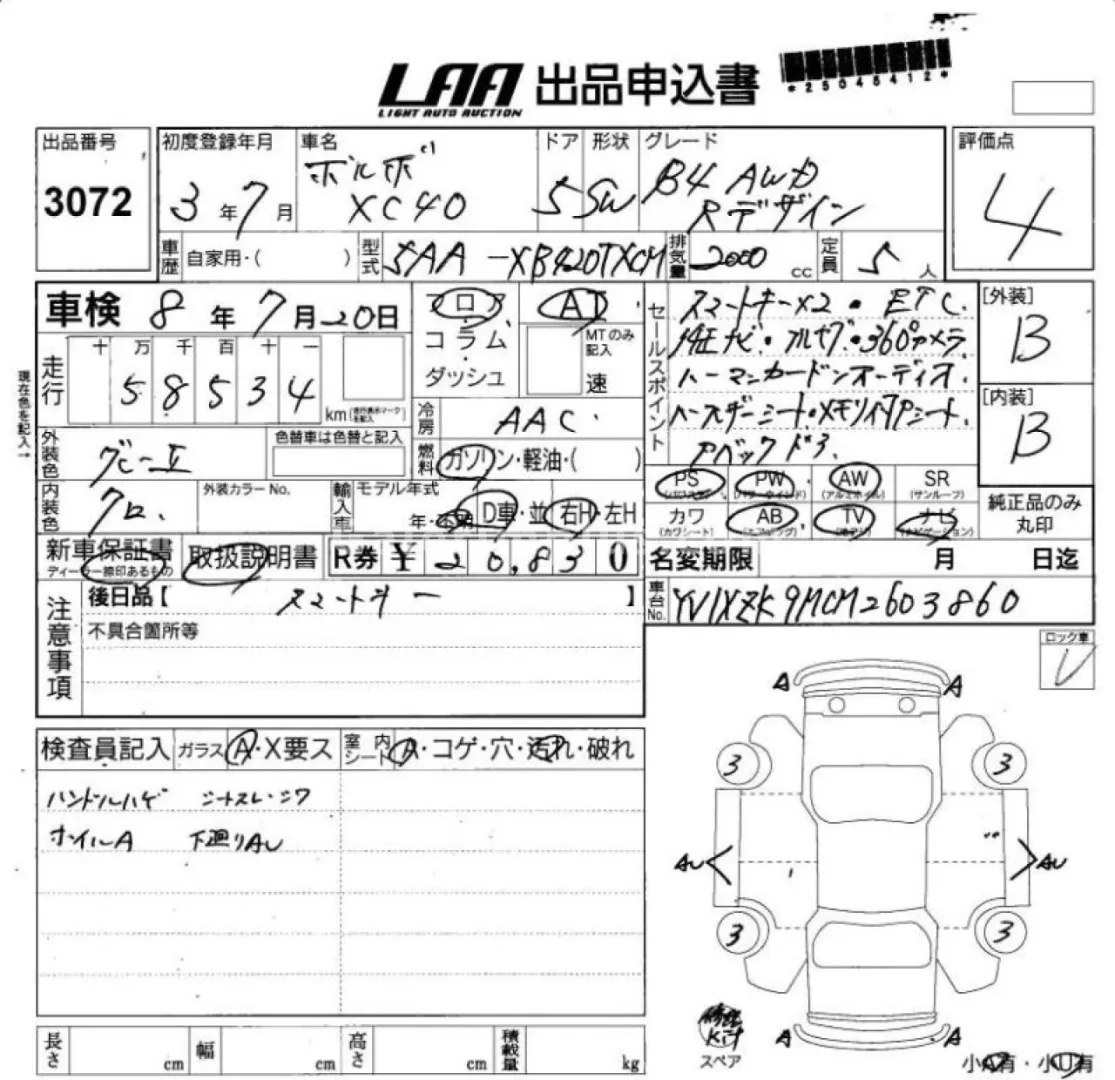 LAA 出品申込書
LIGHT AUTO AUCTION
*25045412*
出品番号
3072
初度登録年月
3年7月
車名
ボルボ
XC40
ドア
5
形状
SW
グレード
B4 AWD
Rデザイン
評価点
4
車歴 自家用・( )
型式 5AA-XB420TXCM
排気量 2000 cc
定員 5人
車検 8年7月20日
フロア・
コラム・
ダッシュ
AT
MTのみ記入
速
セールスポイント
スマートキー×2・ETC.
純正ナビ・フルセグ・360°カメラ
ハーマンカードンオーディオ.
ハーフレザーシート・メモリ付Pシート.
[外装]
B
[内装]
B
現在色を記入→
走行
十万千百十一
58534
km (走行表示マークを記入)
冷房 AAC
燃料 ガソリン・軽油・( )
外装色 グレーII
色替車は色替と記入
内装色 クロ.
外装カラーNo.
輸入車 モデル年式
年・不明 D車・並 右H・左H
PS (パワステ)
PW (パワーウインド)
AW (アルミホイル)
SR (サンルーフ)
カワ (カワシート)
AB (エアバッグ)
TV
ナビ (ナビゲーション)
純正品のみ
丸印
新車保証書
ディーラー捺印あるもの
取扱説明書
R券 ¥20,830
名変期限 月 日迄
注意事項
後日品【 スマートキー 】
不具合箇所等
車台No. YV1XZK9MCM2603860
ロック車
レ
検査員記入 ガラス A・X要ス
室内シート A・コゲ・穴・汚れ・破れ
ハンドルハゲ シートスレ・シワ
ホイルA 下廻りAU
A A
3 3
AU AU
3 3
A A
修理
Kit
スペア
小A有・小U有
長さ cm
幅 cm
高さ cm
積載量 kg